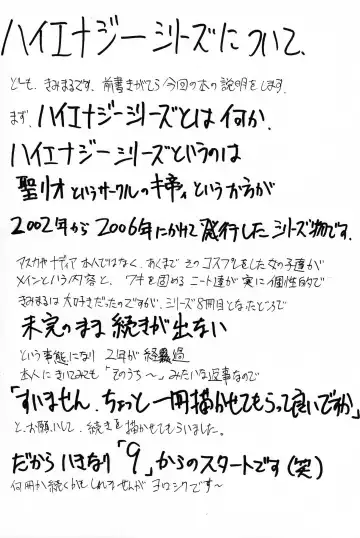 ハイエナジーシリーズについて、
どーも、きみまるです、前書きがてら今回の本の説明をします、
まず、ハイエナジーシリーズとは何か、
ハイエナジーシリーズというのは
聖リオというサークルのキ帝、という方が
2002年から2006年にかけて発行したシリーズ物です、
アスカやナディア本人ではなく、あくまでそのコスプレをした女の子達が
メインという内容と、ワキを固めるニート達が実に個性的で
きみまるは大好きだったのですが、シリーズ8冊目となったところで
未完のまま続きが出ない
という事態になり2年が経過
本人にきいてみても「そのうち〜」みたいな返事なので
「すいません、ちょっと一冊描かせてもらって良いですか」
と、お願いして、続きを描かせてもらいました。
だからいきなり「9」からのスタートです(笑)
何冊か続くかもしれませんがヨロシクです〜